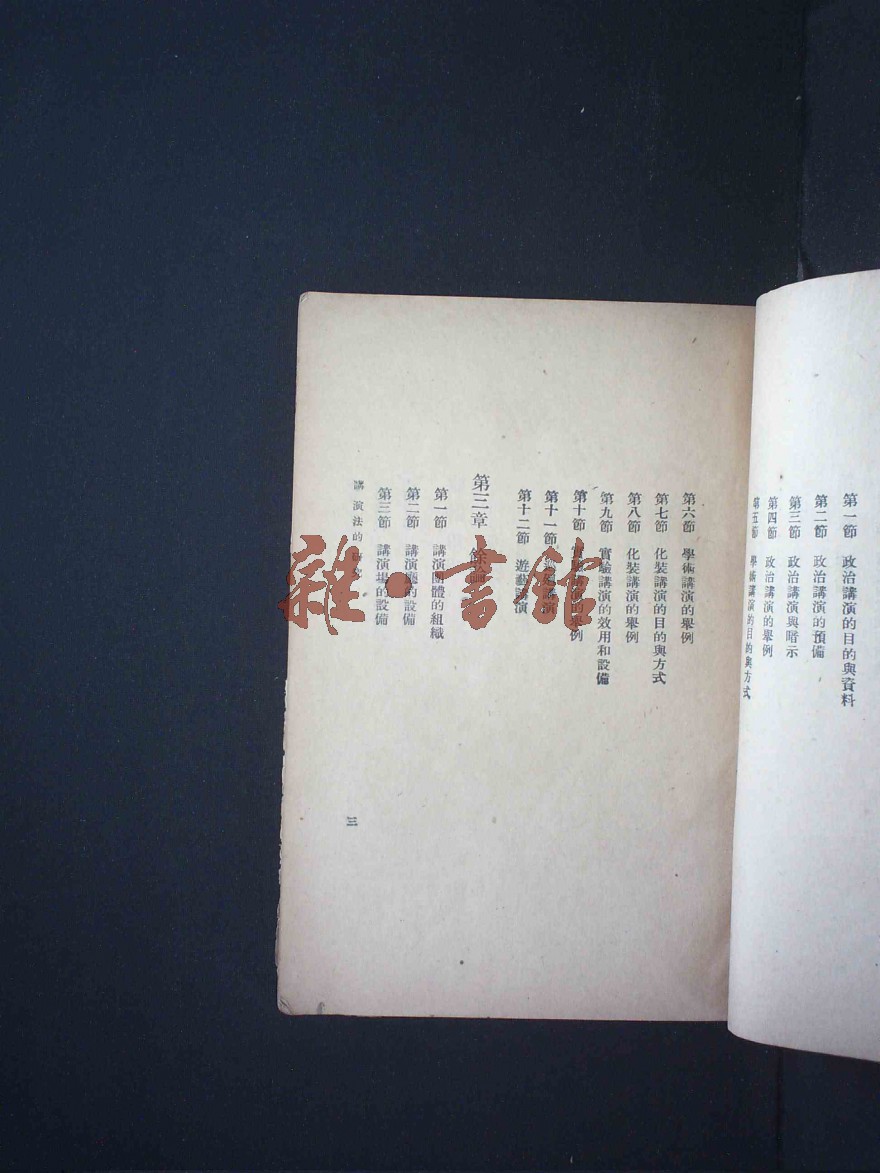 第一節 政治講演的目的與資料
第二節 政治講演的預備
第三節 政治講演與暗示
第四節 政治講演的舉例
第五節 學術講演的目的與方式
第六節 學術講演的舉例
第七節 化裝講演的目的與方式
第八節 化裝講演的舉例
第九節 實驗講演的效用和設備
第十節 實驗講演的舉例
第十一節 講演
第十二節 遊藝講演
第三章 餘論
第一節 講演團體的組織
第二節 講演團的設備
第三節 講演場的設備
講演法的研究
三
雜·書館